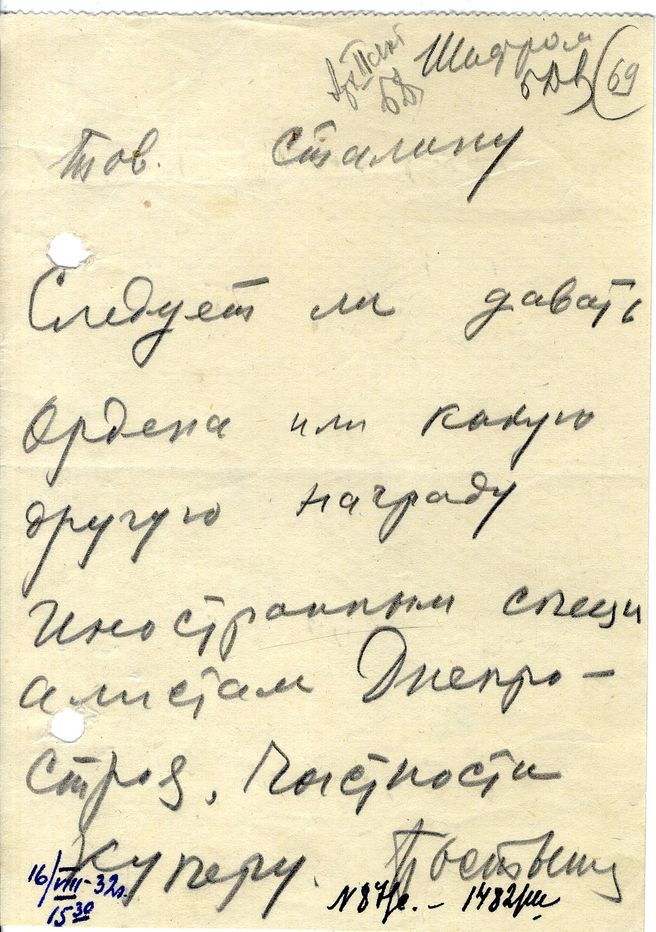 Шифром (69
Тов. Сталину
Следует ли давать
Ордена или какую
другую награду
Иностранным специ
алистам Днепро-
строя, Частности
Куперу. Постышев
16/VIII-32г.
15 30